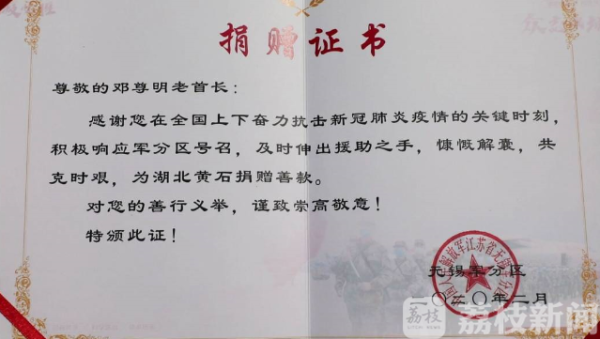 捐赠证书
尊敬的邓尊明老首长：
感谢您在全国上下奋力抗击新冠肺炎疫情的关键时刻，
积极响应军分区号召，及时伸出援助之手，慷慨解囊，共
克时艰，为湖北黄石捐赠善款。
对您的善行义举，谨致崇高敬意！
特颁此证！
无锡军分区
二〇二〇年二月
荔枝
荔枝新闻